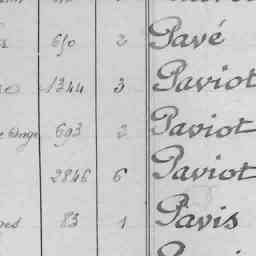 650 2 Pavé
1344 3 Paviot
693 2 Paviot
2846 6 Paviot
83 1 Pavis